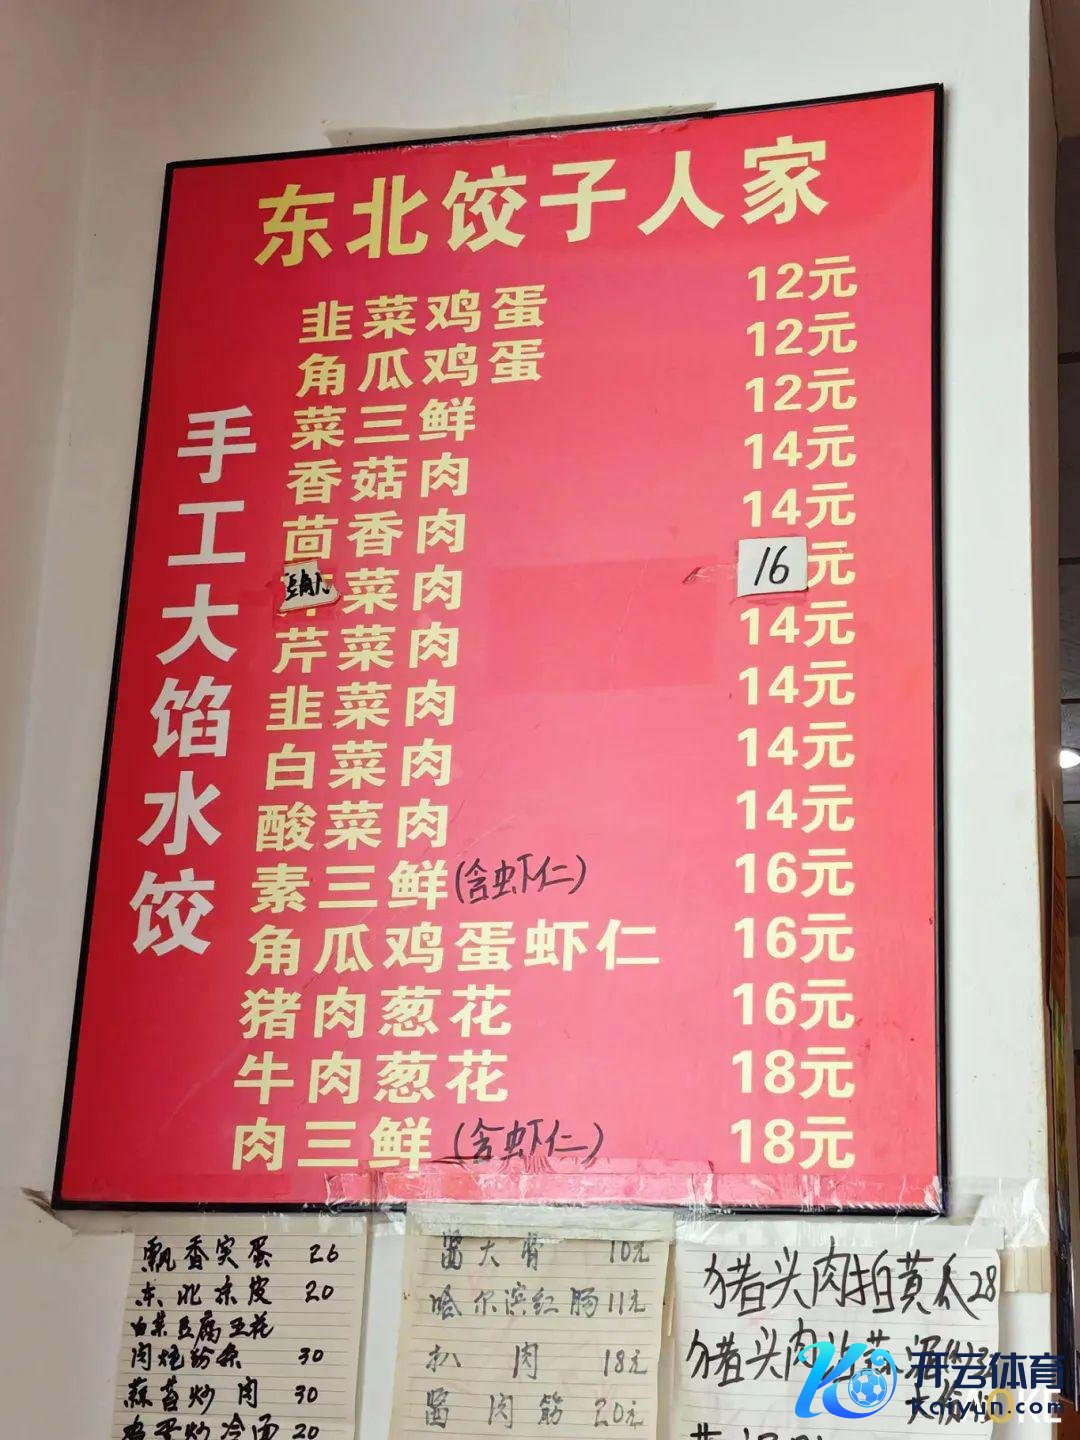 东北饺子人家
手工大馅水饺
韭菜鸡蛋 12元
角瓜鸡蛋 12元
菜三鲜 12元
香菇肉 14元
茴香肉 14元
豆角 菜肉 16元
芹菜肉 14元
韭菜肉 14元
白菜肉 14元
酸菜肉 14元
素三鲜(含虾仁) 16元
角瓜鸡蛋虾仁 16元
猪肉葱花 16元
牛肉葱花 18元
肉三鲜(含虾仁) 18元
飘香实蛋 26
东北凉皮 20
白菜豆腐五花
肉炖粉条 30
蒜苔炒肉 30
鸡蛋炒冷面 20
酱大骨 10元
哈尔滨红肠 11元
扒肉 18元
酱肉筋 20元
猪头肉拍黄瓜28
猪头肉沾蒜
大份
开云体育
Kaiyun.com